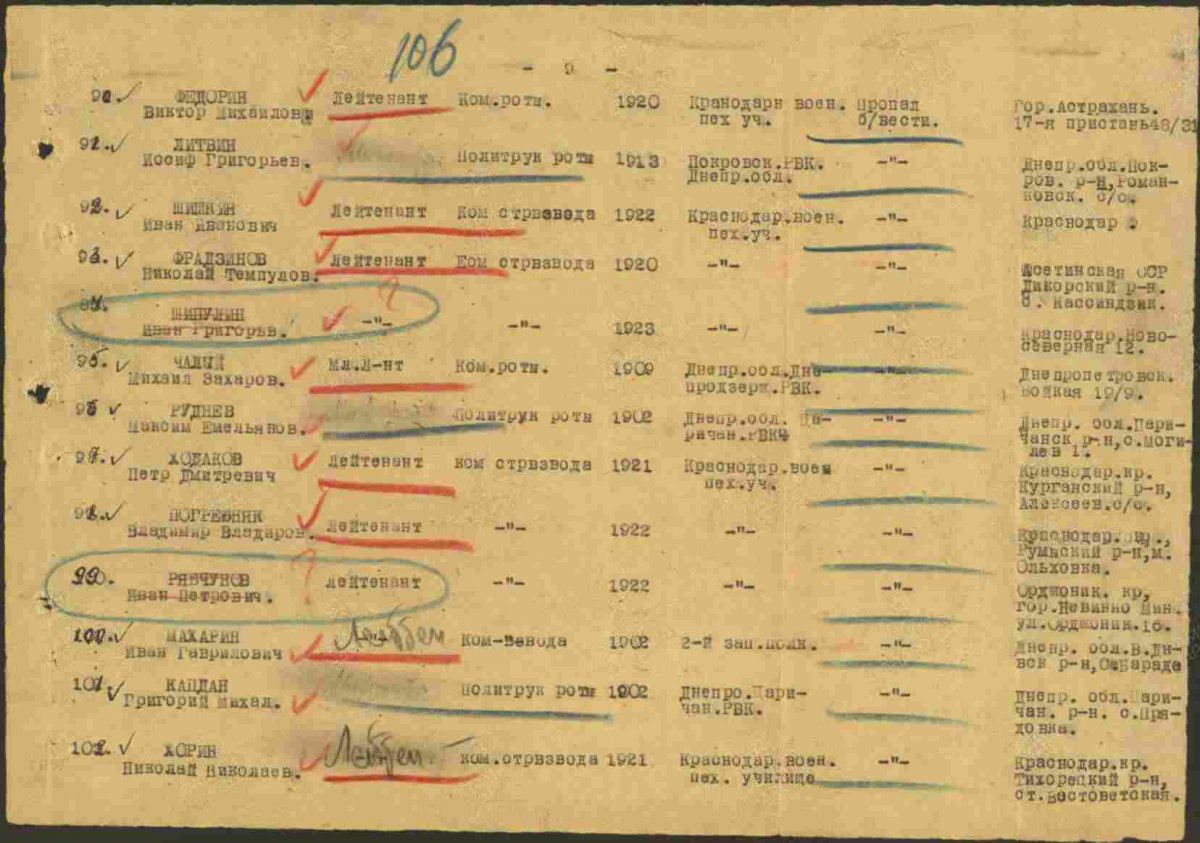 106
- 9 -
90. ФЕДОРИН Лейтенант Ком.роты. 1920 Кранодарн воен. Пропал Гор.Астрахань.
Виктор Михайлови пех уч. б/вести. 17-я пристань48/31
91. ЛИТВИН Политрук роты 1913 Покровск.РВК. -"- Днепр.обл.Пок-
Иосиф Григорьев. Днепр.обл. ров. р-н,Роман-
ковск. с/с.
92. ШИШКИН Лейтенант Ком стрвзвода 1922 Краснодар.воен. -"- Краснодар
Иван Иванович пех.уч.
93. ФРАДЗИНОВ Лейтенант Ком стрвзвода 1920 -"- -"- Асетинская ССР
Николай Темпулов. Дикорский р-н.
с. Кассиндзик.
94. ШИПУЛИН ? -"- -"- 1923 -"- -"- Краснодар.Ново-
Иван Григорьв. северная 12.
95. ЧАЛЫЙ Мл.Л-нт Ком.роты. 1909 Днепр.обл.Дне- -"- Днепропетровск.
Михаил Захаров. продзерж.РВК. 19/9.
96 РУДНЕВ Политрук роты 1902 Днепр.обл. Ца- -"- Днепр. обл.Цари-
Максим Емельянов. ричан.РВК чанск р-н,с.Моги-
лев 1.
97. ХОДАКОВ Лейтенант ком стрвзвода 1921 Краснодар.воен -"- Краснодар.кр.
Петр Дмитревич пех.уч. Курганский р-н,
Алексеев.с/с.
98. ПОГРЕБНЯК Лейтенант -"- 1922 -"- -"- Краснодар.
Владимир Владиров. р-н,м.
Ольховка.
99. РЯБЧУНОВ ? лейтенант -"- 1922 -"- -"- Орджоник. кр,
Иван Петрович. гор.Невинно Мин.
ул.Орджоник.16.
100. МАХАРИН -"- Ком-Взвода 1902 2-й зап.полк. -"- Днепр. обл.
Иван Гаврилович р-н,
101. КАПДАН Политрук роты 1902 Днепро.Цари- -"- Днепр. обл.Цари-
Григорий Михал. чан.РВК. чан. р-н. с.Пря-
довка.
102. ХОРИН ком.стрвзвода 1921 Краснодар.воен. -"- Краснодар.кр.
Николай Николаев. пех. училище Тихорецкий р-н,
ст.Востоветская.